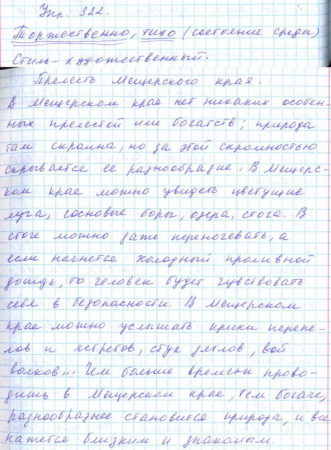 Упр. 322.
Торжественно, тихо (состояние среды)
Стиль - художественный.
Прелесть Мещерского края.
В Мещерском крае нет никаких особен-
ных прелестей или богатств; природа
там скромна, но за этой скромностью
скрывается её разнообразие. В Мещерс-
ком крае можно увидеть цветущие
луга, сосновые боры, озёра, стога. В
стоге можно даже переночевать, а
если начнется холодный проливной
дождь, то человек будет чувствовать
себя в безопасности. В Мещерском
крае можно услышать крики перепе-
лов и ястребов, стук дятлов, вой
волков... Чем больше времени прово-
дишь в Мещерском крае, тем богаче,
разнообразнее становится природа, и все
кажется близким и знакомым.